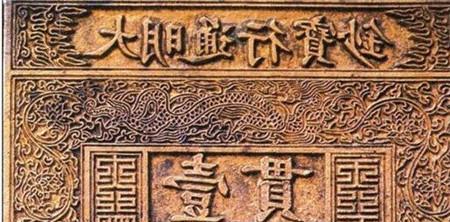 大明通行寶鈔
壹貫